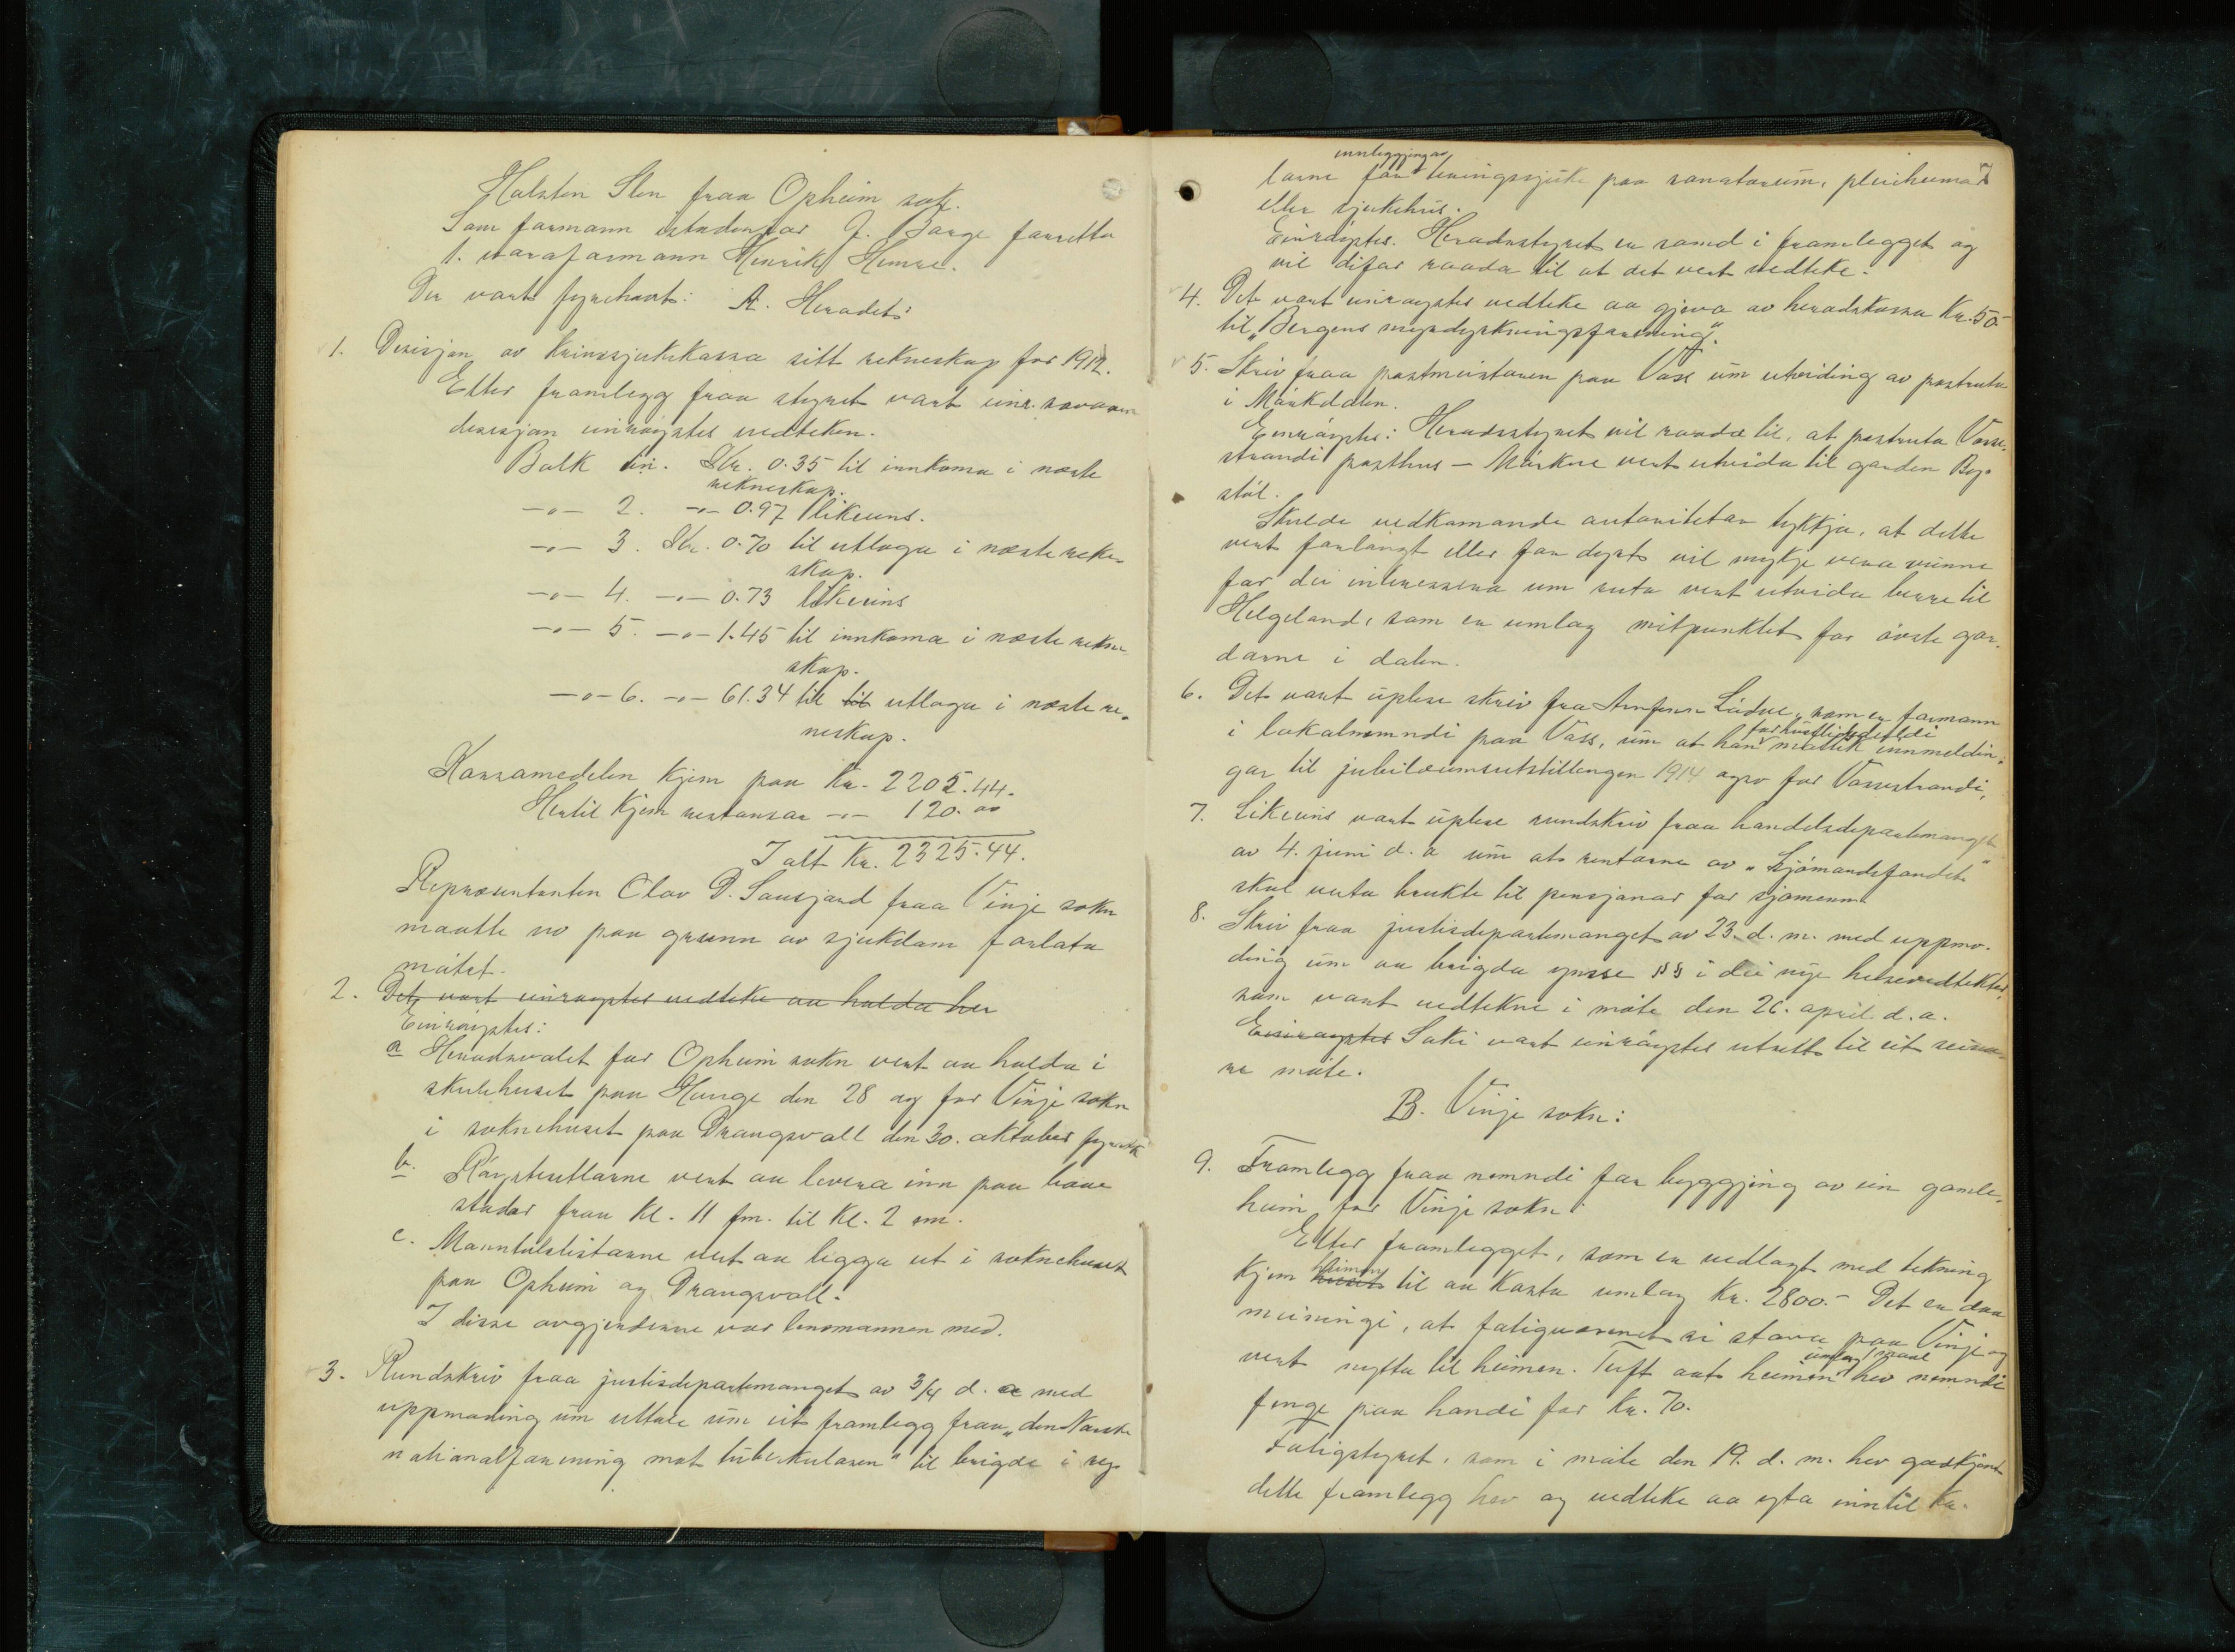 Halsten Slen fraa Opheim sok.
Som formann istadenfor J. Barge forretta
1. varaformann Henrik Hemre.
Der vart fyrehavt: A. Heradet:
1. Desisjon av Krinssjukekassa sitt rekneskap for 1912.
Etter framlegg fraa styret vart einr. sovaren
desisjon einrøystes vedteken.
Bolk ein. Kr. 0.35 til innkoma i næste
rekneskap.
-"- 2. -"- 0.97 likeeins.
-"- 3. Kr. 0.70 til utloga i næste rekne-
skap.
-"- 4. -"- 0.73 likeeins
-"- 5. -"- 1.45 til innkoma i næste rekne
skap.
-"- 6. -"- 61.34 til til utloga i næste re-
neskap.
Kassamedelen kjem paa Kr. 2205.44.
Hertil kjem restansar -"- 120.00
I alt Kr. 2325.44.
Representanten Olav D. Sausjord fraa Vinje sokn
maatte no paa grunn av sjukdom forlata
møtet.
2. Det vart einrøystes vedteke aa halda her
Einrøystes:
a Heradsvalet for Opheim sokn vert aa halda i
skulehuset paa Haugε den 28 og for Vinje sokn
i soknehuset paa Draugsvoll den 30. oktober
b. Røystesetlarne vert aa levera inn paa baae
stadar fraa Kl. 11 fm. til Kl. 2 em.
c. Manntalslistarne vert aa leggja ut i soknehuset
paa Opheim og Draugsvoll.
I disse avgjerderne var lensmannen med.
3. Rundskriv fraa justisdepartemanget av 3/4 d. a med
uppmoding um uttale um eit framlegg fraa „den Norske
nationalforening mot tuberkulosen" til brigde i reg-
7
innleggjing av
larne for teringssjuke paa sanatorium, pleieheimar
eller sjukehus.
Einrøystes. Heradsstyret er samd i framlegget og
vil difor raada til at det vert vedteke.
4. Det vart einrøystes vedteke aa gjeva av heradskassa Kr. 50.-
til „Bergens myrdyrkningsforening".
5. Skriv fraa postmeistaren paa Voss um utviding av postruta
i Mørkdalen.
Einrøystes: Heradsstyret vil raada til, at postruta Vosse-
strandi posthus – Mørkve vert utvida til garden Bog-
støl.
Skulde vedkomande autoritetar tykkja, at dette
vert forlangt eller for dyrt vil mykje vera vunne
for dei interessera um ruta vert utvida berre til
Helgeland, som er umlag mitpunktet for øvste gar-
darne i dalen.
6. Det vart uplese skriv fraa Arnfinn Lødve, som er formann
i lokalnemndi paa Voss, um at han for husflidsdeildi mottek innmeldin-
gar til jubilæumsutstillingen 1914 ogso for Vossestrandi.
7. Likeeins vart uplese rundskriv fraa handelsdepartemanget
av 4. juni d. a um at rentarne av „Sjømandsfondet"
skal verta brukte til pensjonar for sjømenn.
8. Skriv fraa justisdepartemanget av 23. d. m. med uppmo-
ding um aa brigda ymsse §§ i dei nye helsevedtekter,
som vart vedtekne i møte den 26. april d. a.
Einrøystes Saki vart einrøystes utsett til eit seina-
re møte.
B. Vinje sokn:
9. Framlegg fraa nemndi for byggjing av ein gamle-
heim for Vinje sokn:
Etter framlegget, som er vedlagt med tekning
kjem huset heimen til aa kosta umlag Kr. 2800.- Det er daa
meiningi, at fatigvesenet si stova paa Vinje og
vert nytta til heimen. Tuft aat heimen umlag 1 maal hev nemndi
fenge paa handi for Kr. 70.
Fatigstyret, som i møte den 19. d. m. hev godkjent
dette framlegg hev og vedteke aa yta inntil Kr.